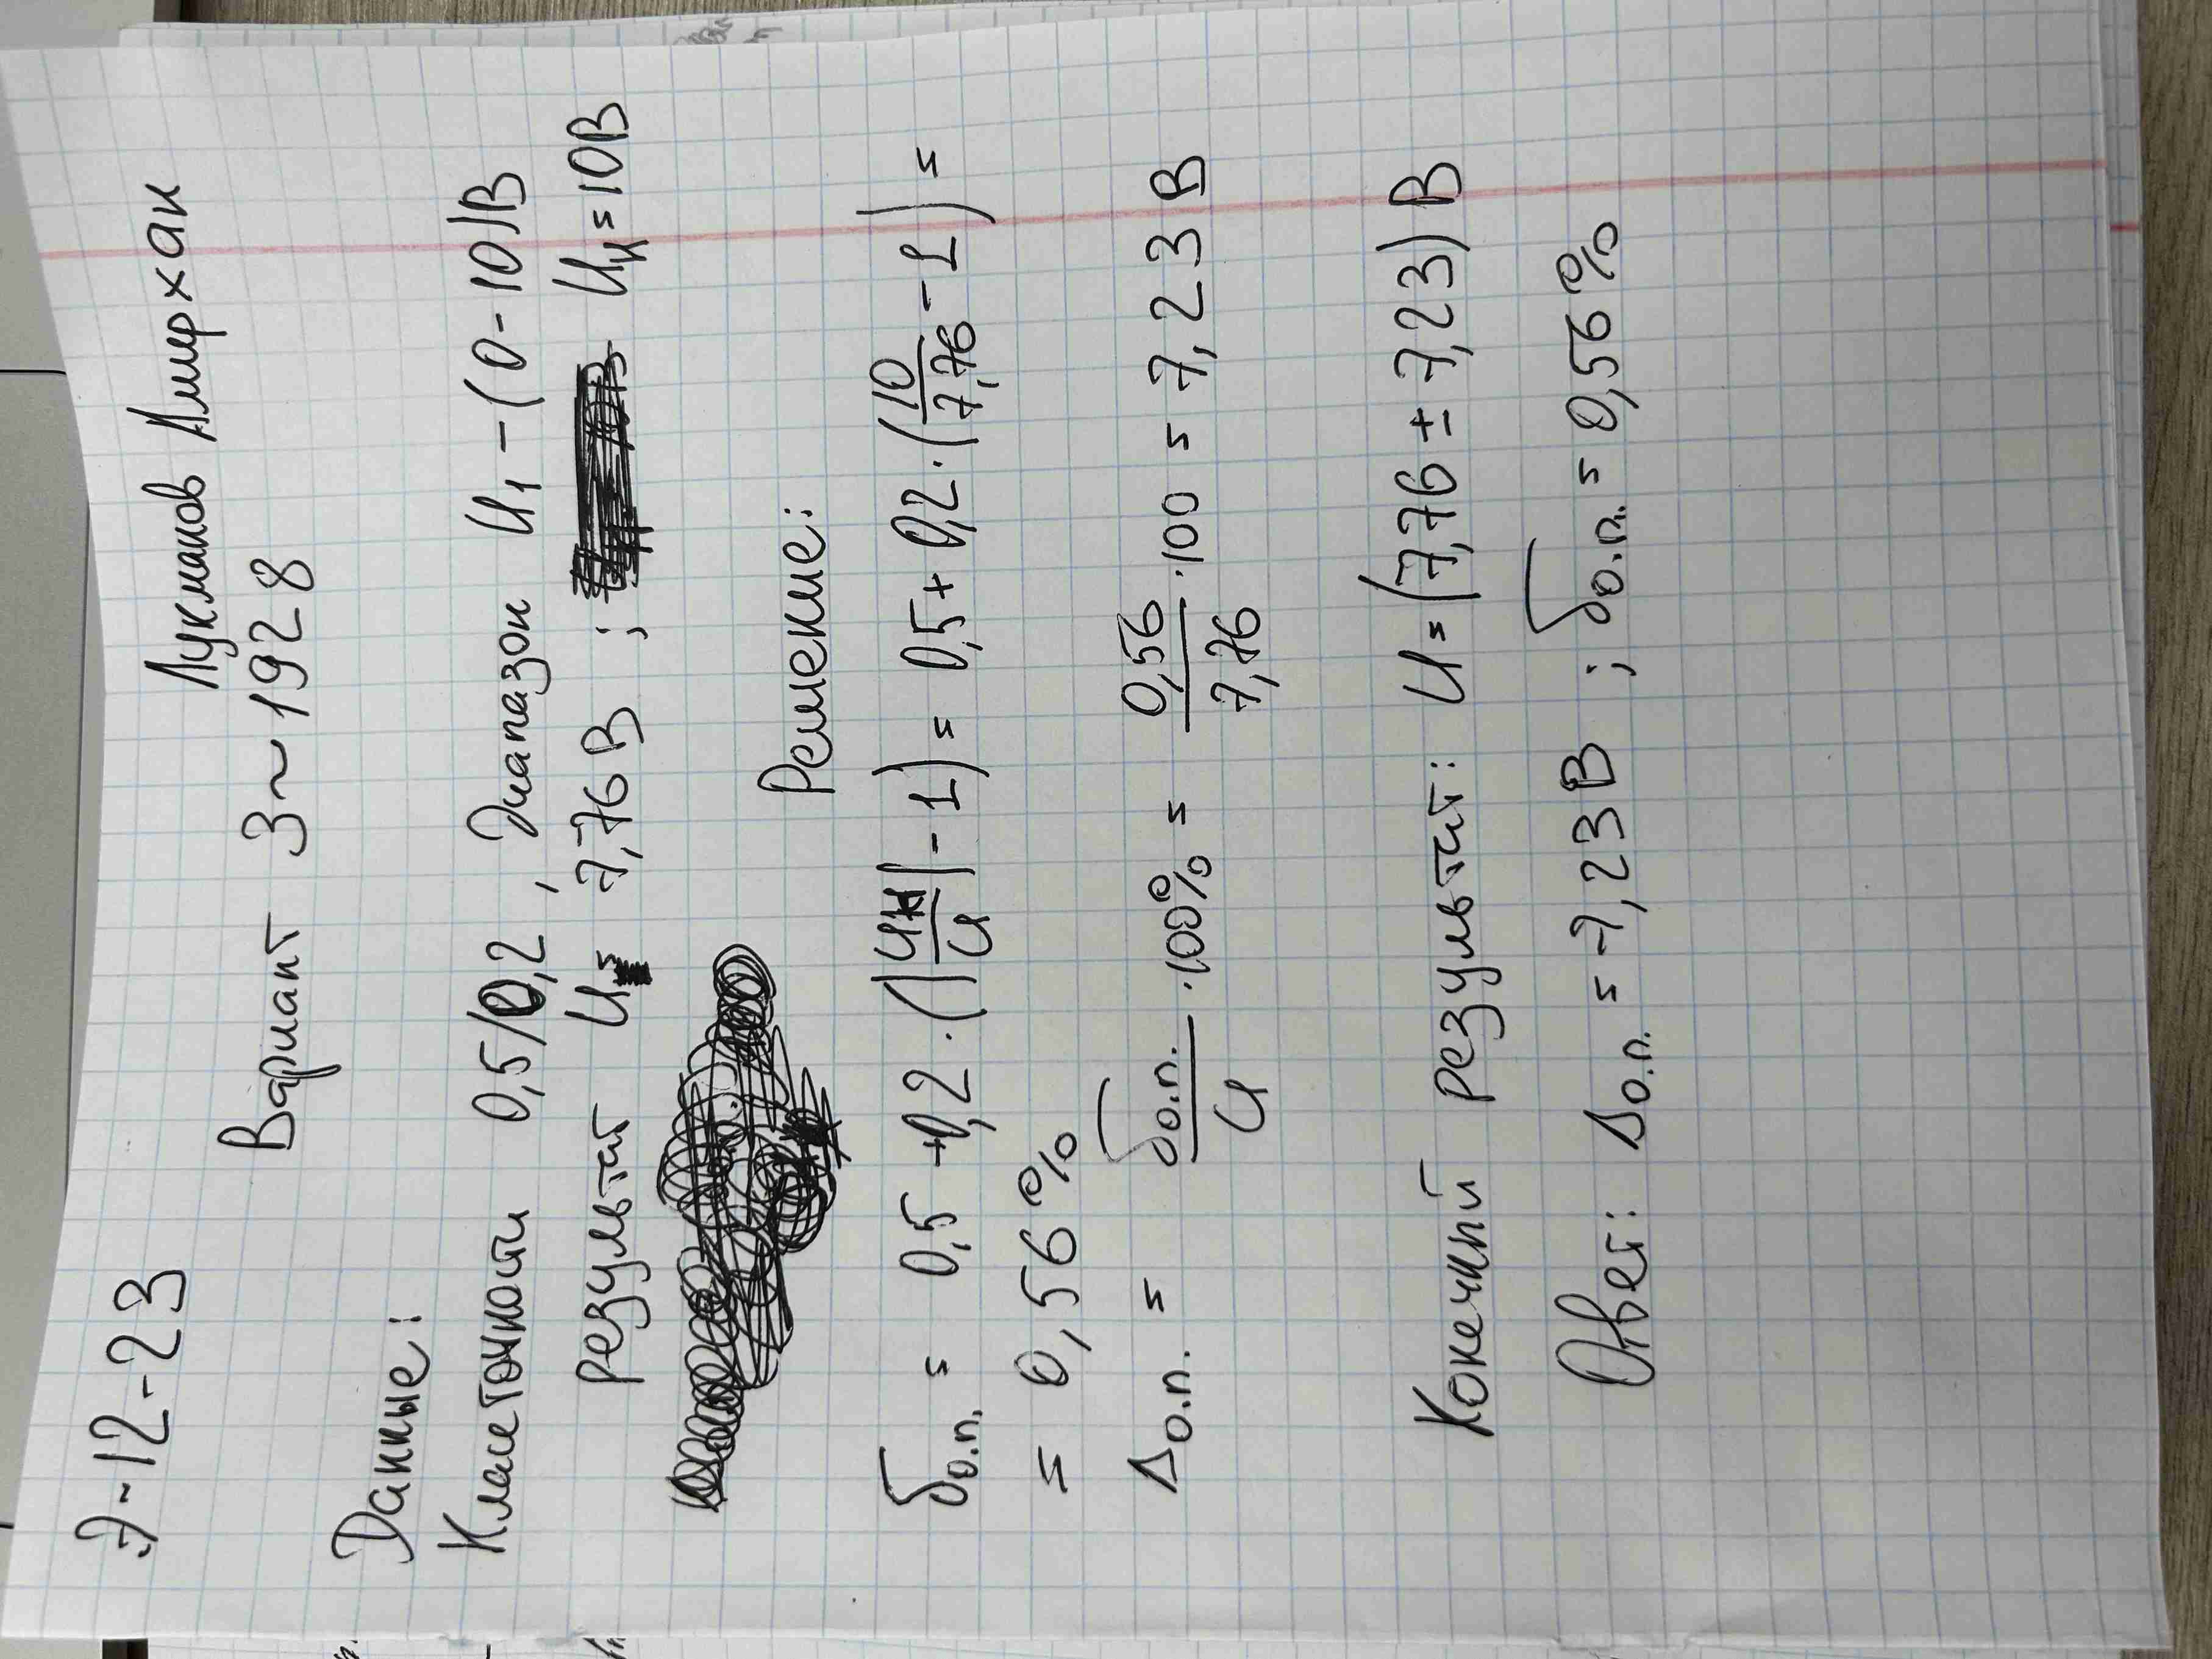 Э-12-23 Лукманов Амирхан
Вариант 3~1928
Данные:
Класс точности 0,5/0,2, Диапазон U₁ - (0-10)В
результат U = 7,76 В ; Uк = 10В
Решение:
δо.п. = 0,5 + 0,2 · (|Uк/U| - 1) = 0,5 + 0,2 · (10/7,76 - 1) =
= 0,56%
Δо.п. = δо.п./U · 100% = 0,56/7,76 · 100 = 7,23 В
Конечный результат: U = (7,76 ± 7,23) В
Ответ: Δо.п. = 7,23В ; δо.п. = 0,56%